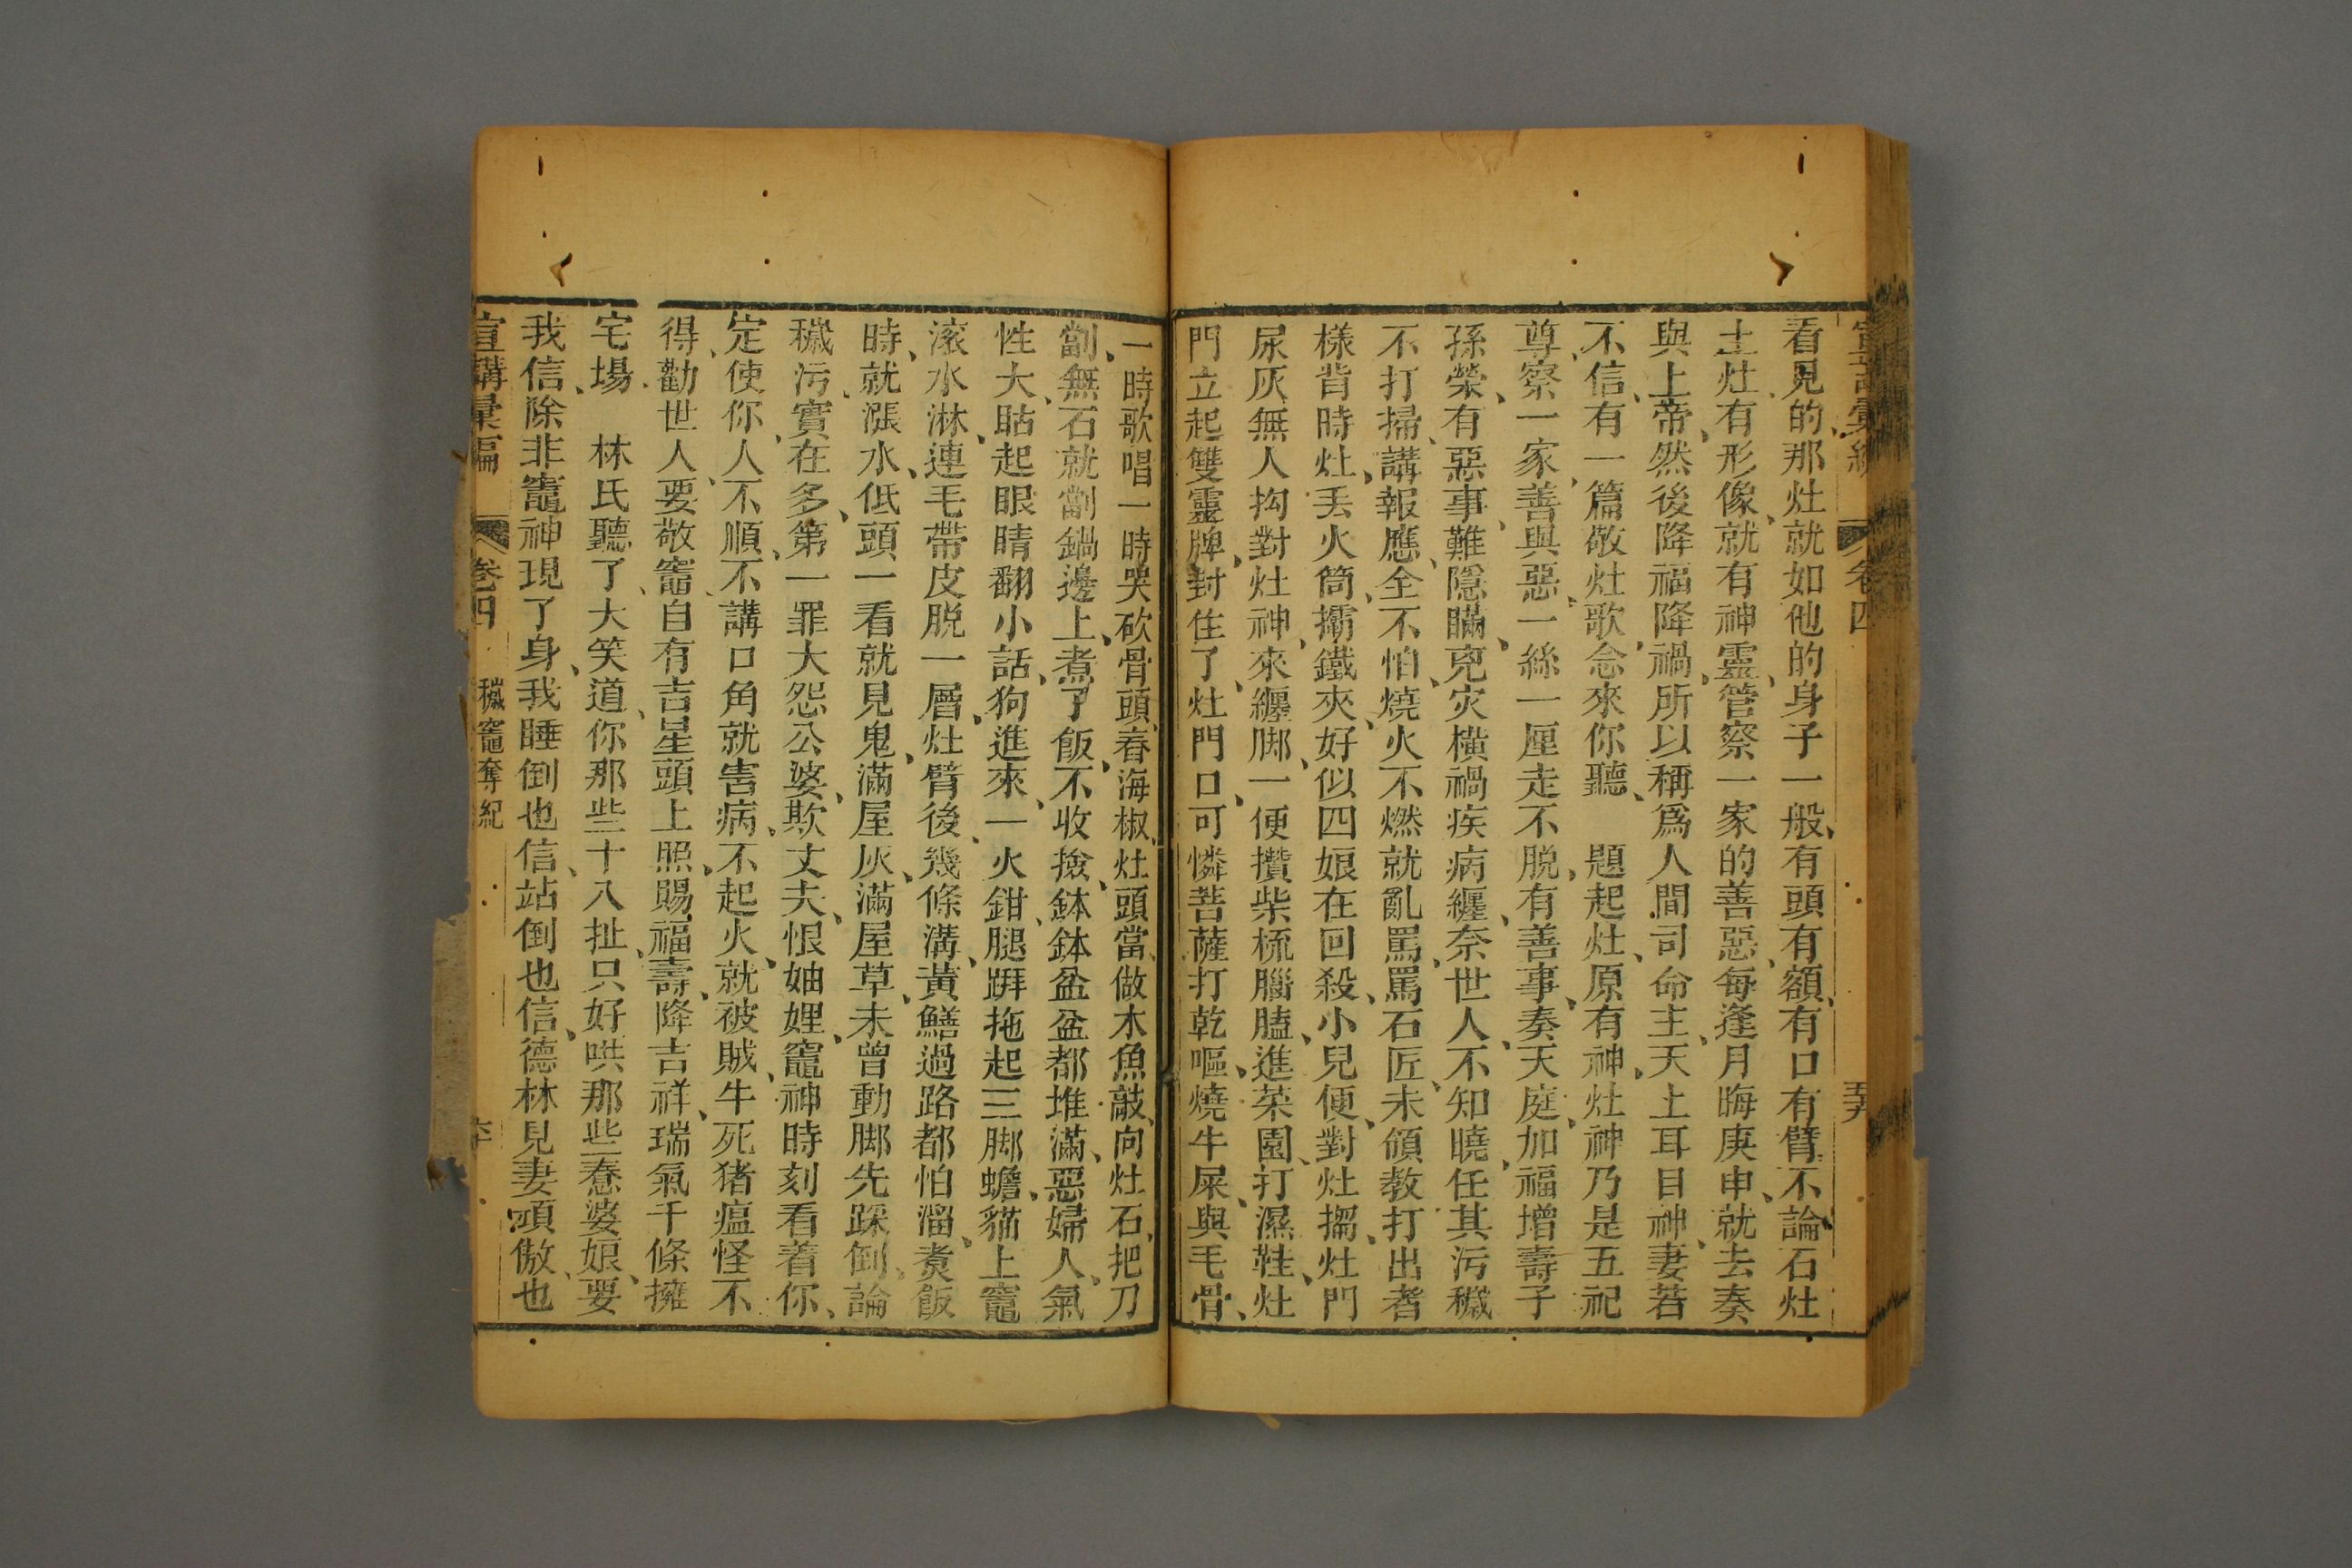 看見的、那灶就如他的身子一般、有頭有額、有口有臂、不論石灶
土灶、有形像、就有神靈、管察一家的善惡、每逢月晦庚申、就去奏
與上帝、然後降福降禍、所以稱爲人間司命主、天上耳目神、妻若
不信、有一篇敬灶歌、念來你聽、 題起灶、原有神、灶神乃是五祀
尊、察一家、善與惡、一絲一厘走不脫、有善事、奏天庭、加福增壽子
孫榮、有惡事、難隱瞞、兇灾橫禍疾病纏、奈世人、不知曉、任其污穢
不打掃、講報應、全不怕、燒火不燃就亂罵、罵石匠、未領教、打出者
樣背時灶、丢火筒、攦鐵夾、好似四娘在回殺、小兒便、對灶搊、灶門
尿灰無人抅、對灶神、來纏脚、一便攢柴梳腦膉、進菜園、打濕鞋、灶
門立起雙靈牌、封住了、灶門口、可憐菩薩打乾嘔、燒牛屎、與毛骨、
一時歌唱一時哭、砍骨頭、舂海椒、灶頭當做木魚敲、向灶石、把刀
劏、無石就劏鍋邊上、煮了飯、不收撿、鉢鉢盆盆都堆滿、惡婦人、氣
性大、鴶起眼睛翻小話、狗進來、一火鉗、腿跰拖起三脚蟾、貓上竈
滚水淋、連毛帶皮脱一層、灶臂後、幾條溝、黃鱔過路都怕溜、煮飯
時、就漲水、低頭一看就見鬼、滿屋灰、滿屋草、未曾動脚先踩倒、論
穢污、實在多、第一罪大怨公婆、欺丈夫、恨妯娌、竈神時刻看着你、
定使你、人不順、不講口角就害病、不起火、就被賊、牛死猪瘟怪不
得、勸世人、要敬竈、自有吉星頭上照、賜福壽、降吉祥、瑞氣千條擁
宅場 林氏聽了、大笑道、你那些十八扯、只好哄那些憃婆娘、要
我信、除非竈神現了身、我睡倒也信、站倒也信、德林見妻頑傲、也
宣講彙編 卷四 穢竈奪紀